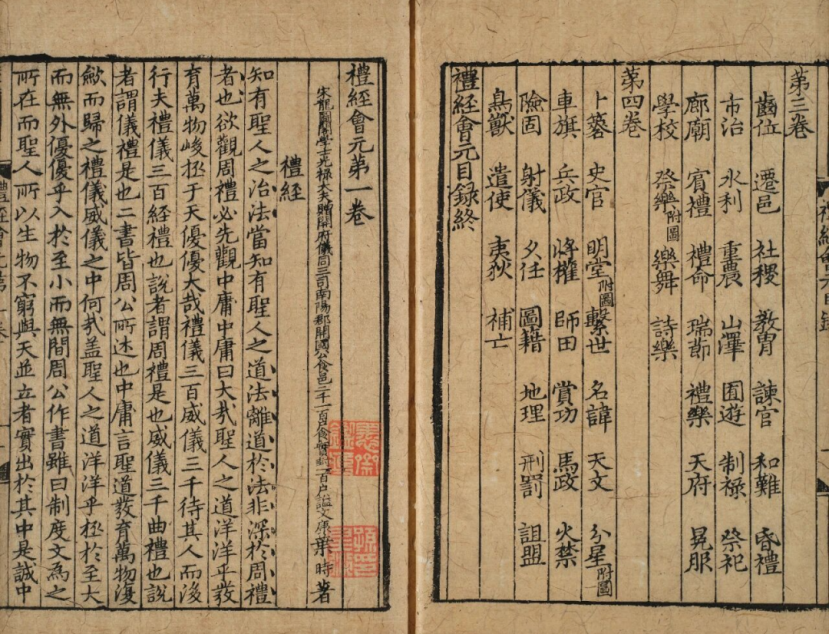 第三卷
齒位 遷邑 社稷 教胄 諫官 和難 昏禮
市治 水利 重農 山澤 囿遊 制祿 祭祀
廊廟 賓禮 禮命 瑞節 禮樂 天府 冕服
學校 祭樂附圖 樂舞 詩樂
第四卷
卜簭 史官 明堂附圖 繫世 名諱 天文 分星附圖
車旗 兵政 將權 師田 賞功 馬政 火禁
險固 射儀 久任 圖籍 地理 刑罰 詛盟
鳥獸 遣使 夷狄 補亡
禮經會元目録終
禮經會元第一卷
宋龍圖閣學士光祿大夫贈開府儀同三司南陽郡開國公食邑二千一百戶食實封一百戶謚文康葉時著
禮經
知有聖人之治法當知有聖人之道法離道於法非深於周禮
者也欲觀周禮必先觀中庸中庸曰大哉聖人之道洋洋乎發
育萬物峻極于天優優大哉禮儀三百威儀三千待其人而後
行夫禮儀三百經禮也說者謂周禮是也威儀三千曲禮也說
者謂儀禮是也二書皆周公所述也中庸言聖道發育萬物復
歛而歸之禮儀威儀之中何哉盖聖人之道洋洋乎極於至大
而無外優優乎入於至小而無間周公作書雖曰制度文為之
所在而聖人所以生物不窮與天並立者實出於其中是誠中